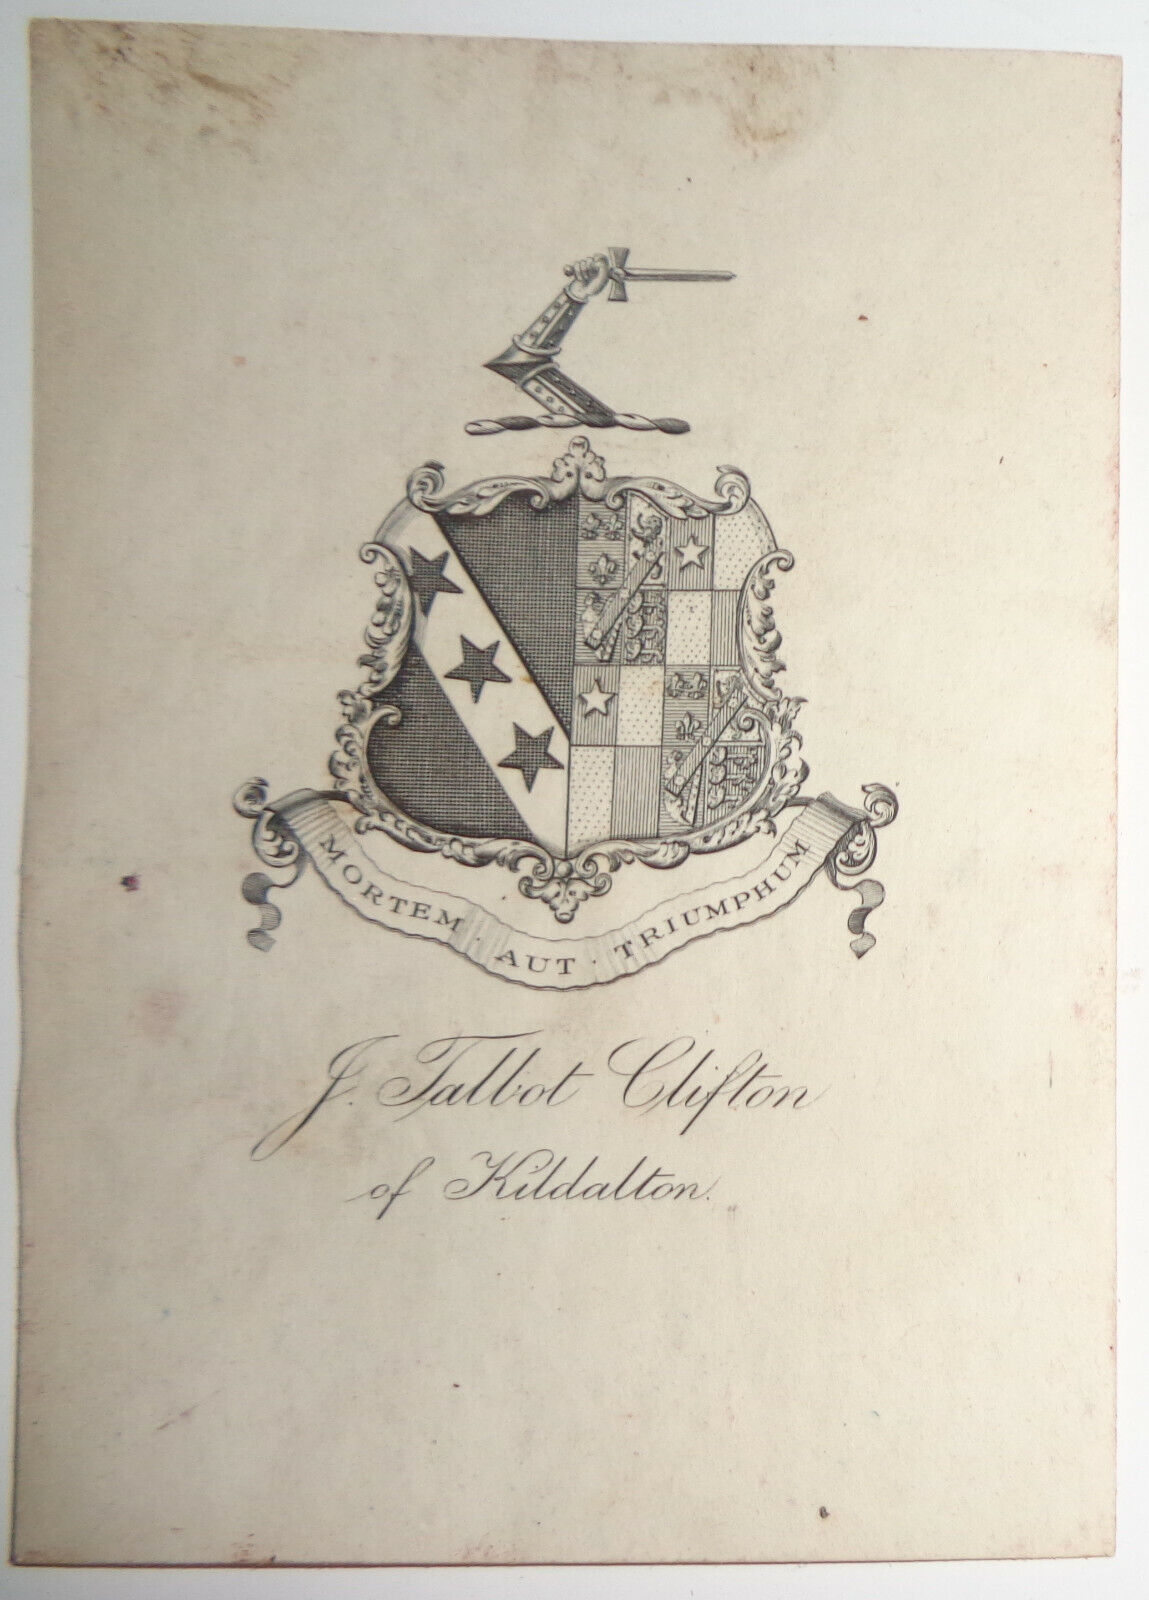 MORTEM · AUT · TRIUMPHUM
J. Talbot Clifton
of Kildalton.